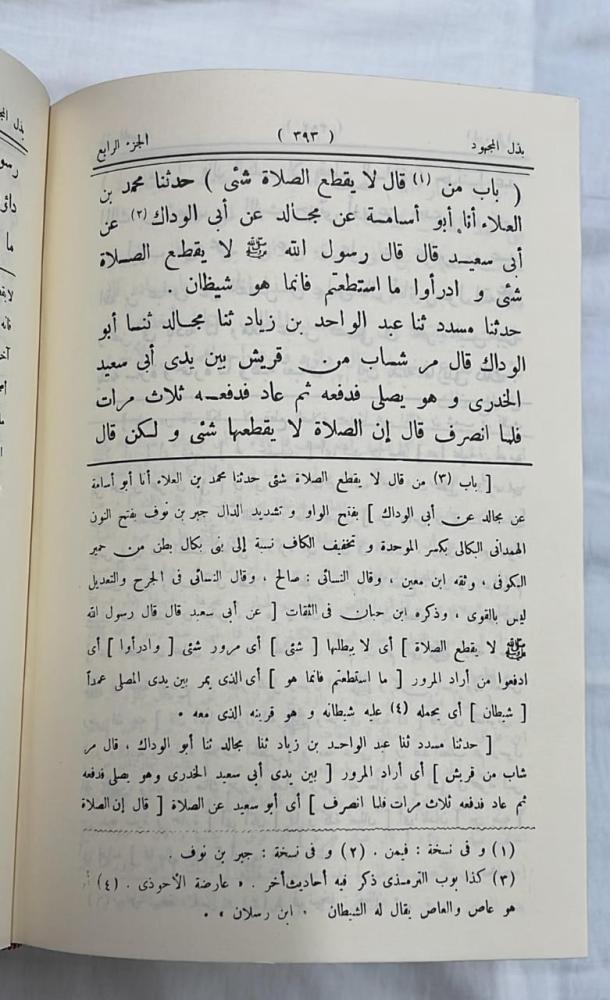 بذل المجهود ( ٣٩٣ ) الجزء الرابع
( باب من (١) قال لا يقطع الصلاة شئى ) حدثنا محمد بن
العلاء أنا أبو أسامة عن مجالد عن أبى الوداك (٢) عن
أبى سعيد قال قال رسول الله ﷺ لا يقطع الصلاة
شئى و ادرأوا ما استطعتم فانما هو شيظان .
حدثنا مسدد ثنا عبد الواحد بن زياد ثنا مجالد ثنا أبو
الوداك قال مر شاب من قريش بين يدى أبى سعيد
الخدرى و هو يصلى فدفعه ثم عاد فدفعه ثلاث مرات
فلما انصرف قال إن الصلاة لا يقطعها شئى و لكن قال
[ باب (٣) من قال لا يقطع الصلاة شئى حدثنا محمد بن العلاء أنا أبو أسامة
عن مجالد عن أبى الوداك ] بفتح الواو و تشديد الدال جبر بن نوف بفتح النون
الهمدانى البكالى بكسر الموحدة و تخفيف الكاف نسبة إلى بنى بكال بطن من حمير
البكوفى ، وثقه ابن معين ، وقال النسائى : صالح ، وقال النسائى فى الجرح والتعديل
ليس بالقوى ، وذكره ابن حبان فى الثقات [ عن أبى سعيد قال قال رسول الله
ﷺ لا يقطع الصلاة ] أى لا يبطلها [ شئى ] أى مرور شئى [ وادرأوا ] أى
ادفعوا من أراد المرور [ ما استطعتم فانما هو ] أى الذى يمر بين يدى المصلى عمداً
[ شيطان ] أى يحمله (٤) عليه شيطانه و هو قرينه الذى معه .
[ حدثنا مسدد ثنا عبد الواحد بن زياد ثنا مجالد ثنا أبو الوداك ، قال مر
شاب من قريش ] أى أراد المرور [ بين يدى أبى سعيد الخدرى وهو يصلى فدفعه
ثم عاد فدفعه ثلاث مرات فلما انصرف ] أى أبو سعيد عن الصلاة [ قال إن الصلاة
(١) و فى نسخة : فيمن . (٢) و فى نسخة : جبر بن نوف .
(٣) كذا بوب الترمذى ذكر فيه أحاديث أخر . « عارضة الأحوذى . (٤) أو
هو عاص والعاص يقال له الشيطان . ابن رسلان » .